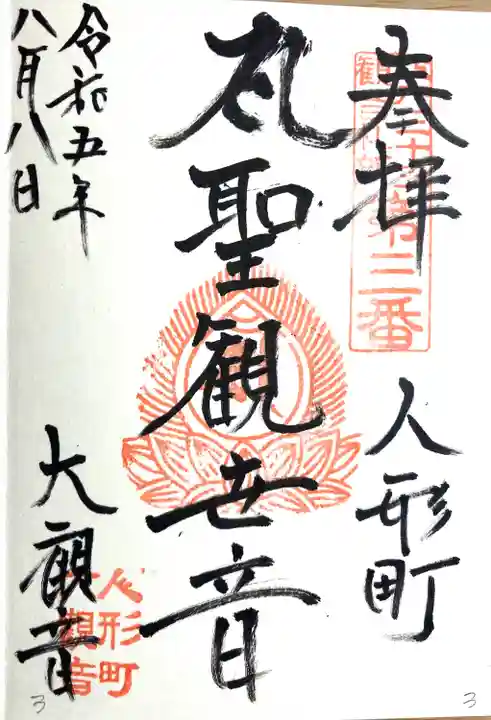 奉拝
人形町
聖観世音
令和五年
八月八日
大観音
第三番
人形町
大観音
3
3